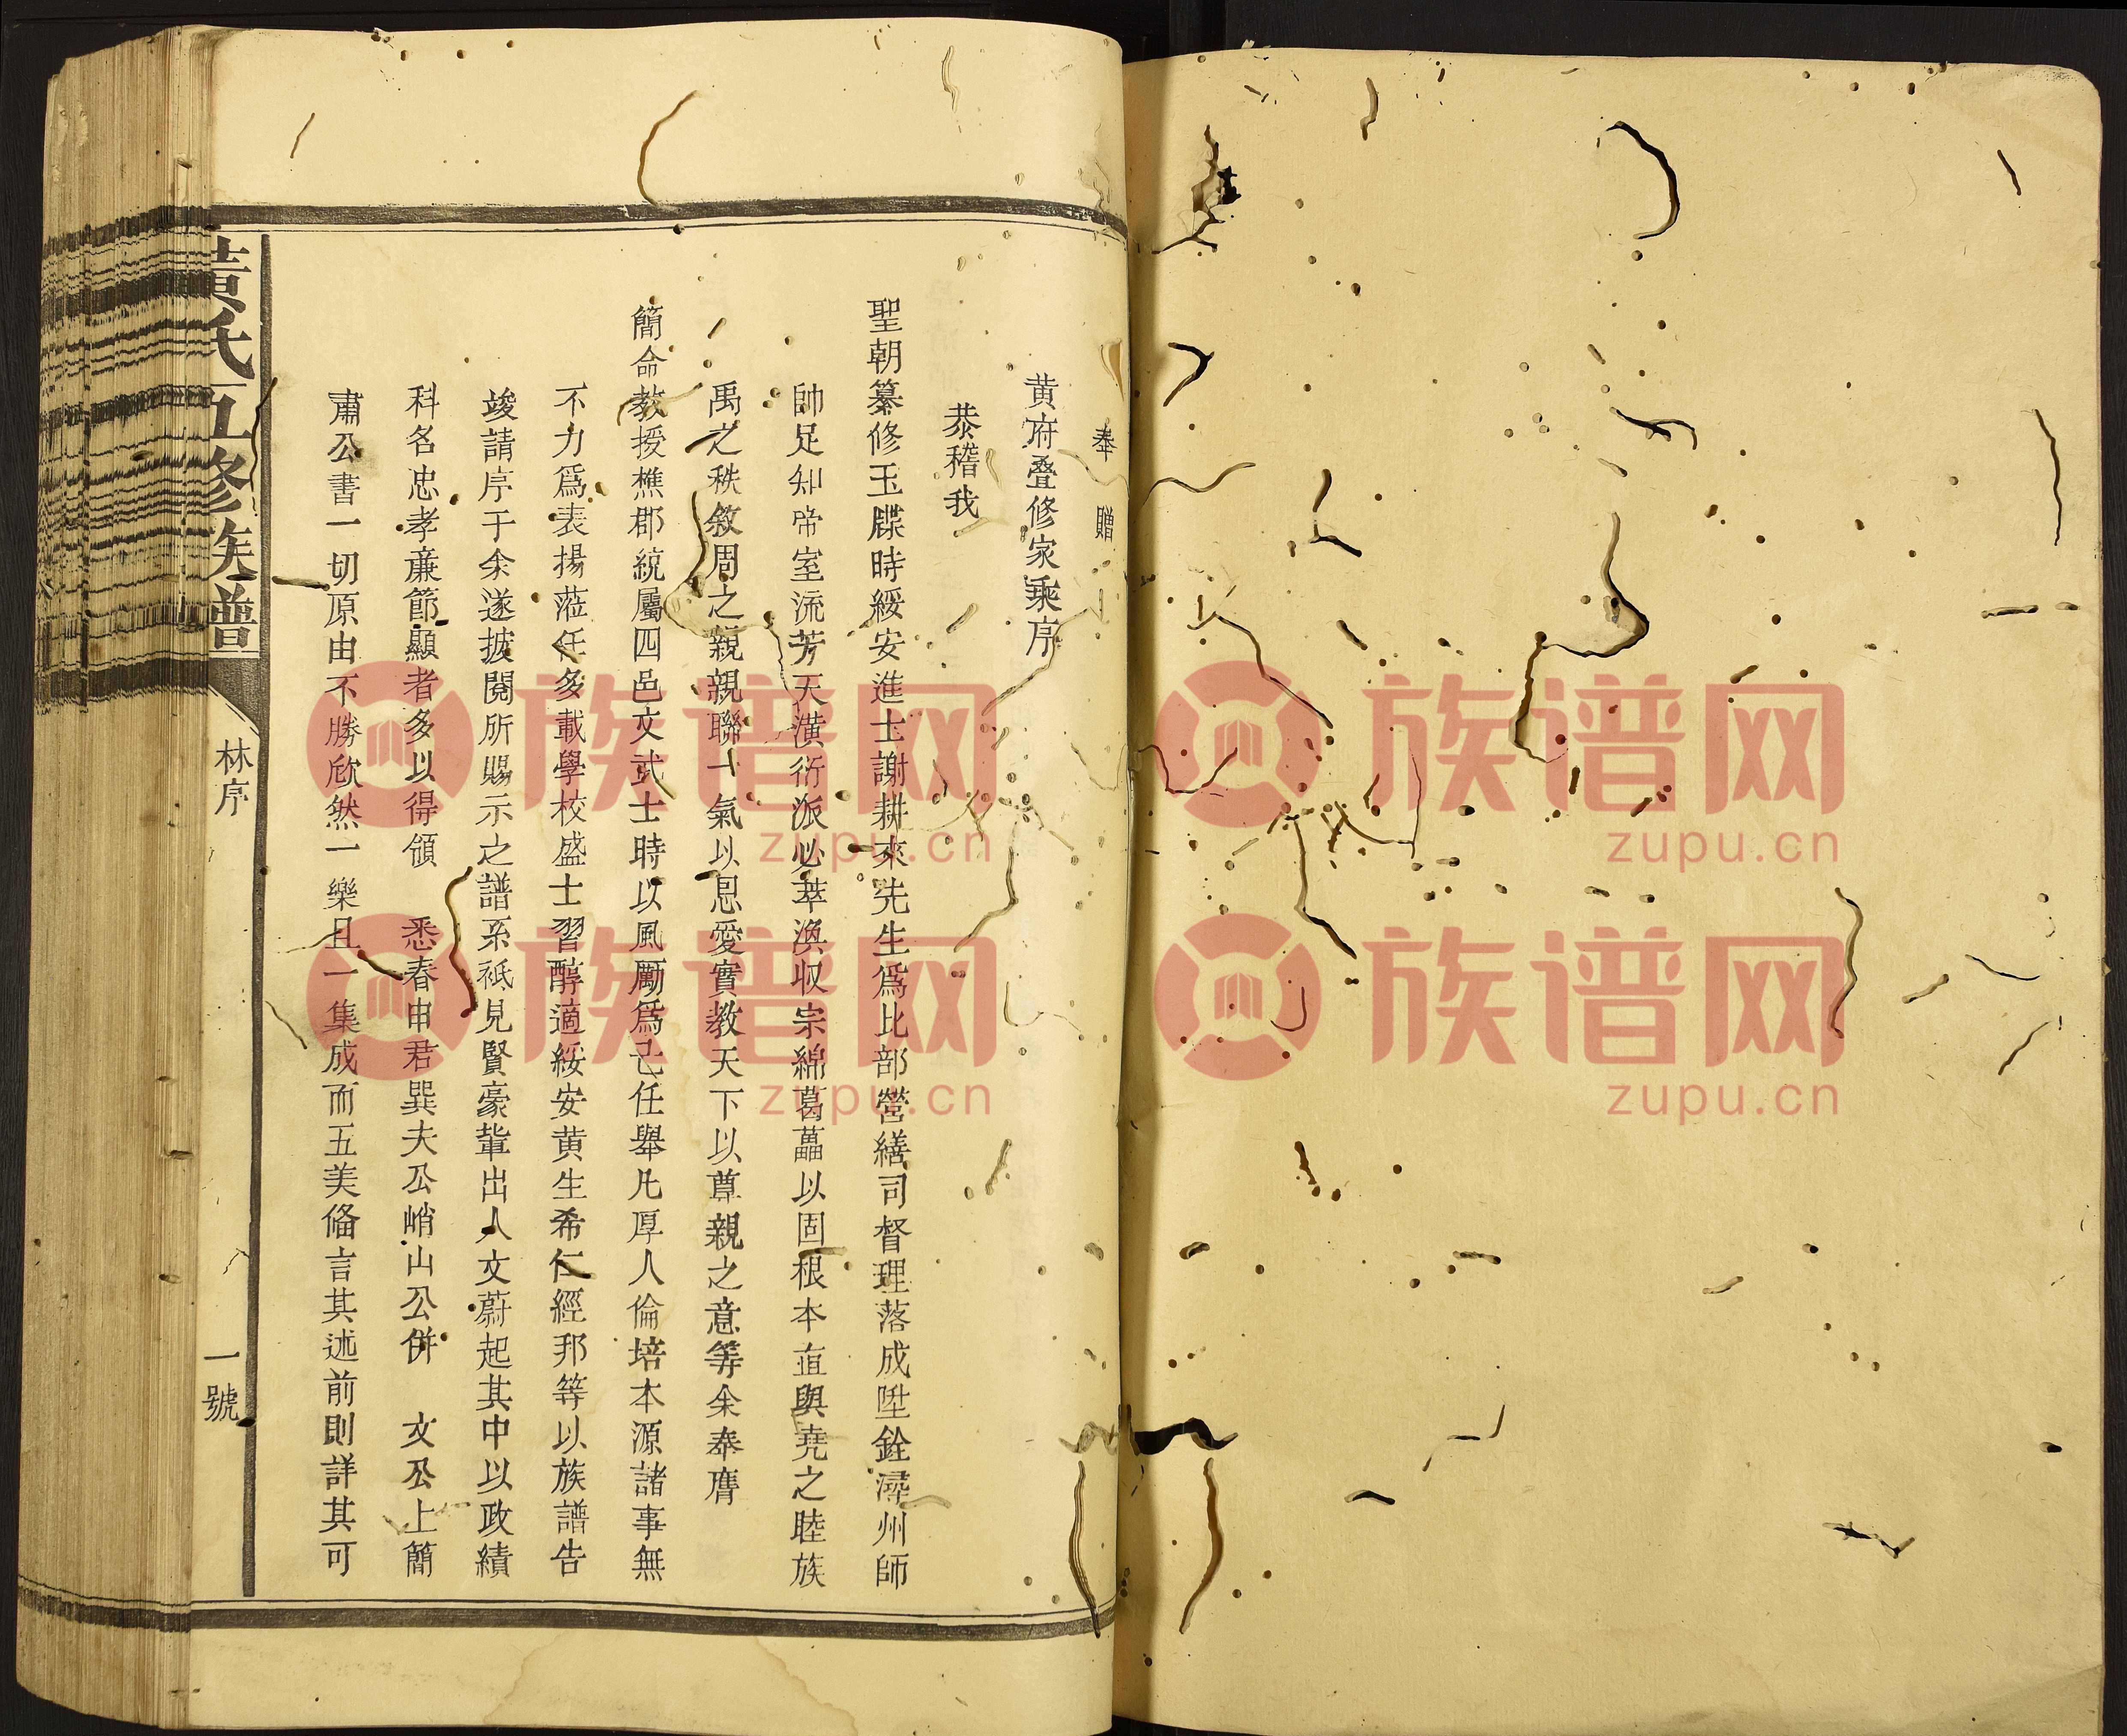 奉贈
黄府叠修家乘序
恭稽我
聖朝纂修玉牒時綏安進士謝耕來先生爲比部營繕司督理落成陞銓潯州師
帥足知帝室流芳天潢衍派必萃渙収宗綿葛藟以固根本直與堯之睦族
禹之秩敘周之親親聯一氣以恩愛實教天下以尊親之意等余奉膺
簡命教授樵郡統屬四邑文武士時以風勵爲己任舉凡厚人倫培本源諸事無
不力爲表揚蒞任多載學校盛士習醇適綏安黄生希仁經邦等以族譜告
竣請序于余遂披閱所賜示之譜系祇見賢豪輩出人文蔚起其中以政績
科名忠孝廉節顯者多以得領 悉春申君巽夫公峭山公併 文公上簡
肅公書一切原由不勝欣然一樂且一集成而五美俻言其述前則詳其可
黄氏五修族譜
林序
一號
族谱网
zupu.cn
族谱网
zupu.cn
族谱网
zupu.cn
族谱网
zupu.cn